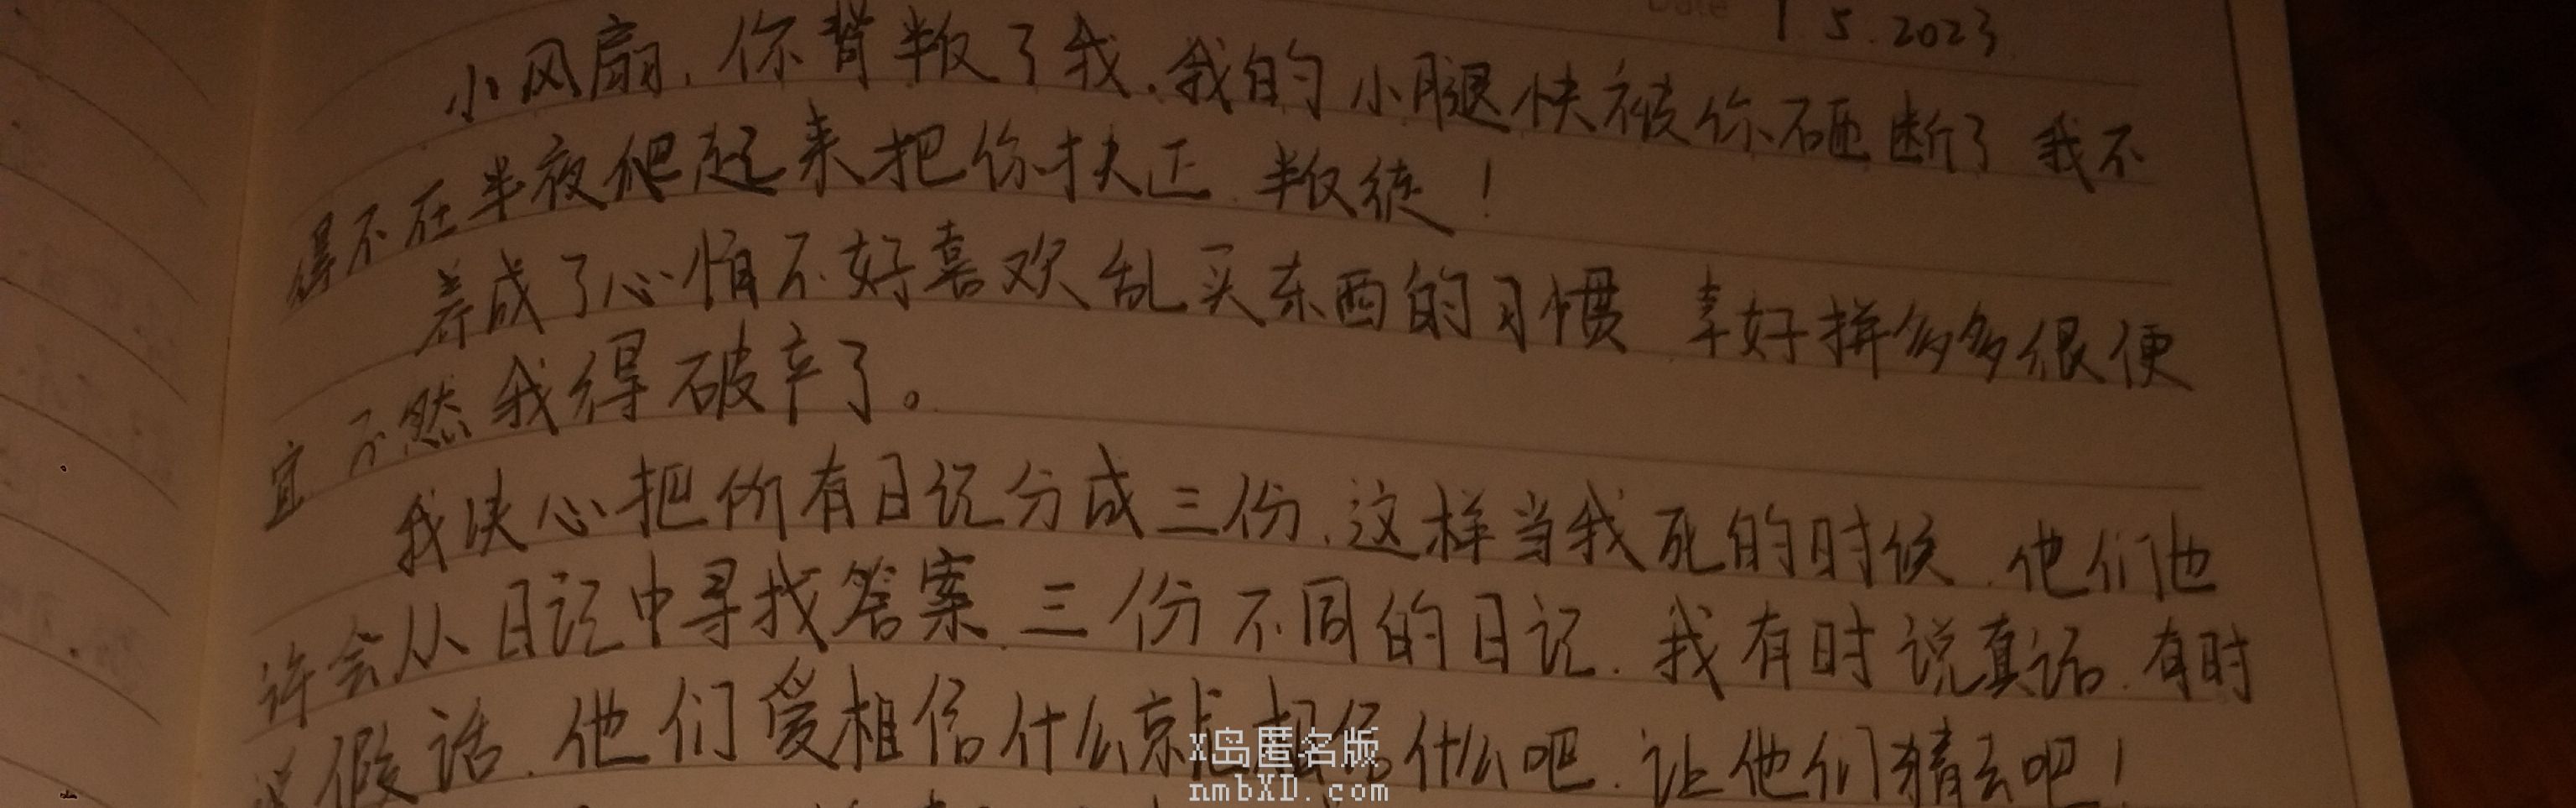 Date 1 5.2023
小风扇，你背叛了我，我的小腿快被你砸断了 我不
得不在半夜爬起来把你扶正 叛徒！
养成了心情不好喜欢乱买东西的习惯 幸好拼多多很便
宜 不然我得破产了。
我决心把所有日记分成三份，这样当我死的时候，他们也
许会从日记中寻找答案 三份不同的日记，我有时说真话，有时
说假话，他们爱相信什么就相信什么吧，让他们猜去吧！
X岛匿名版
nmbXD.com